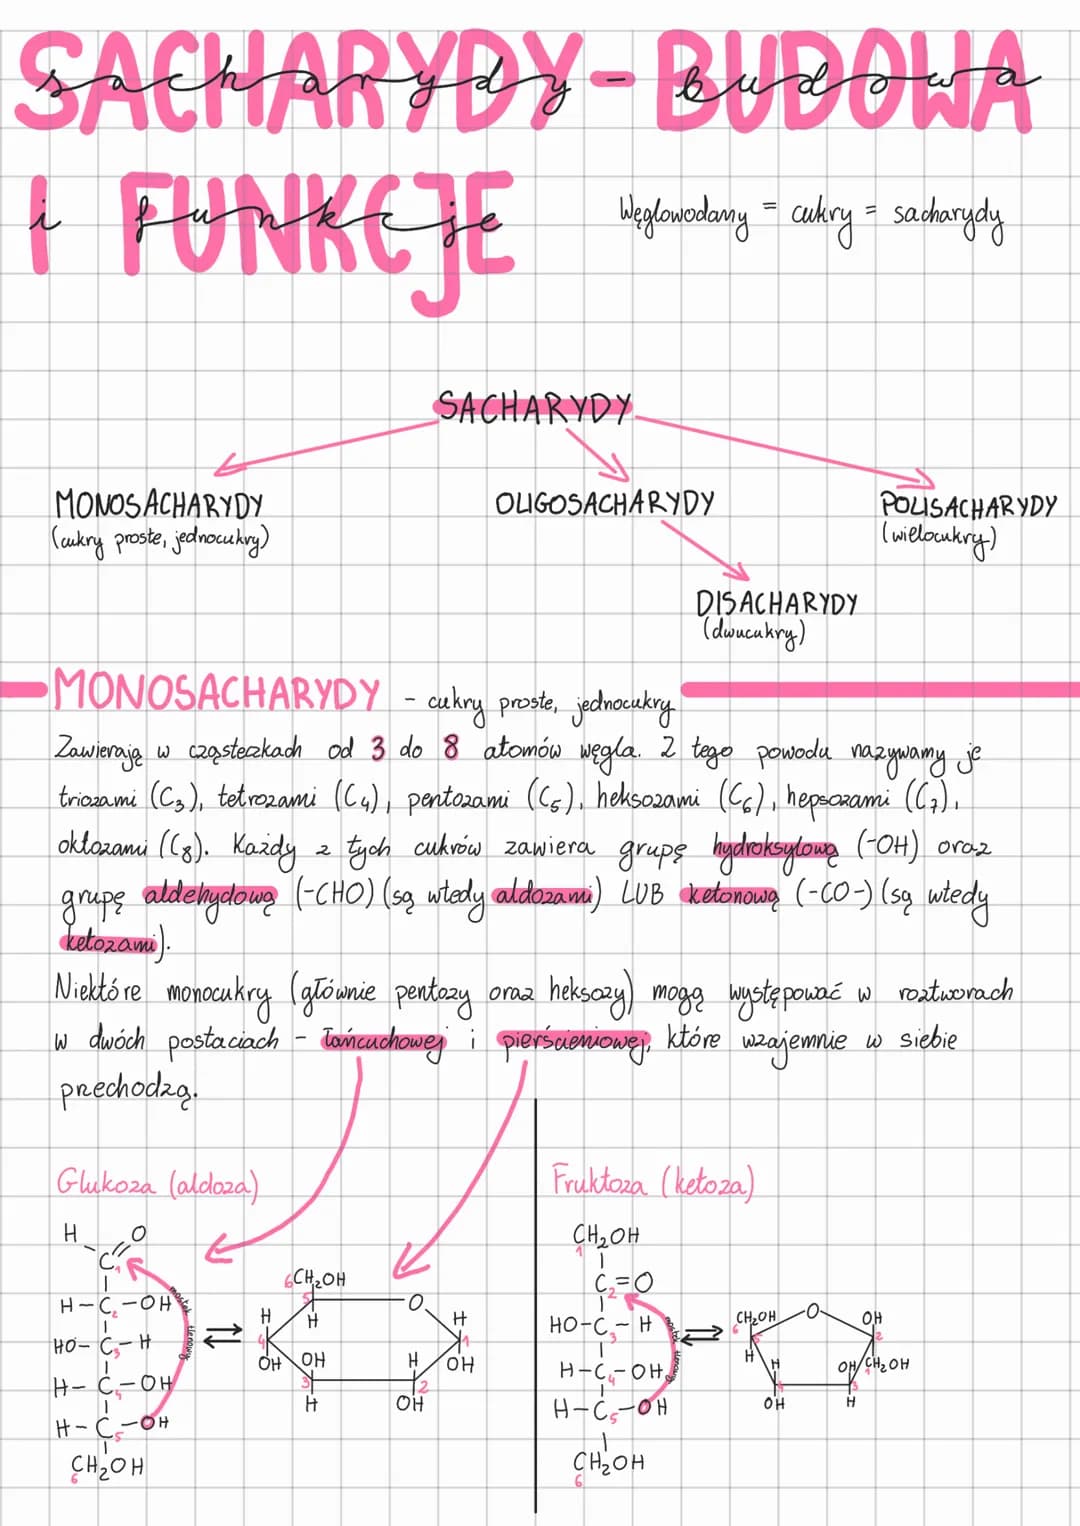 SACHARYDY - BUDOWA
sacharydy - budowa
I FUNKCJE
i funkcje
Węglowodany = cukry = sacharydy
SACHARYDY
MONOSACHARYDY
(cukry proste, jednocukry)
OLIGOSACHARYDY
POLISACHARYDY
(wielocukry)
DISACHARYDY
(dwucukry)
MONOSACHARYDY - cukry proste, jednocukry
Zawierają w cząsteczkach od 3 do 8 atomów węgla. Z tego powodu nazywamy je
triozami (C₃), tetrozami (C₄), pentozami (C₅), heksozami (C₆), hepsozami (C₇),
oktozami (C₈). Każdy z tych cukrów zawiera grupę hydroksylową (-OH) oraz
grupę aldehydową (-CHO) (są wtedy aldozami) LUB ketonową (-CO-) (są wtedy
ketozami).
Niektóre monocukry (głównie pentozy oraz heksozy) mogą występować w roztworach
w dwóch postaciach - łańcuchowej i pierścieniowej, które wzajemnie w siebie
przechodzą.
Glukoza (aldoza)
H O
C₁
H-C₂-OH
HO-C₃-H
H-C₄-OH
H-C₅-OH
6 CH₂OH
mostek tlenowy
⇌
6 CH₂OH
5 O
H H H
4 1
OH OH H OH
3 2
H OH
Fruktoza (ketoza)
1 CH₂OH
C₂=O
HO-C₃-H
H-C₄-OH
H-C₅-OH
6 CH₂OH
mostek tlenowy
⇌
6 CH₂OH O OH
5 2
H H OH 1 CH₂OH
4 3
OH H